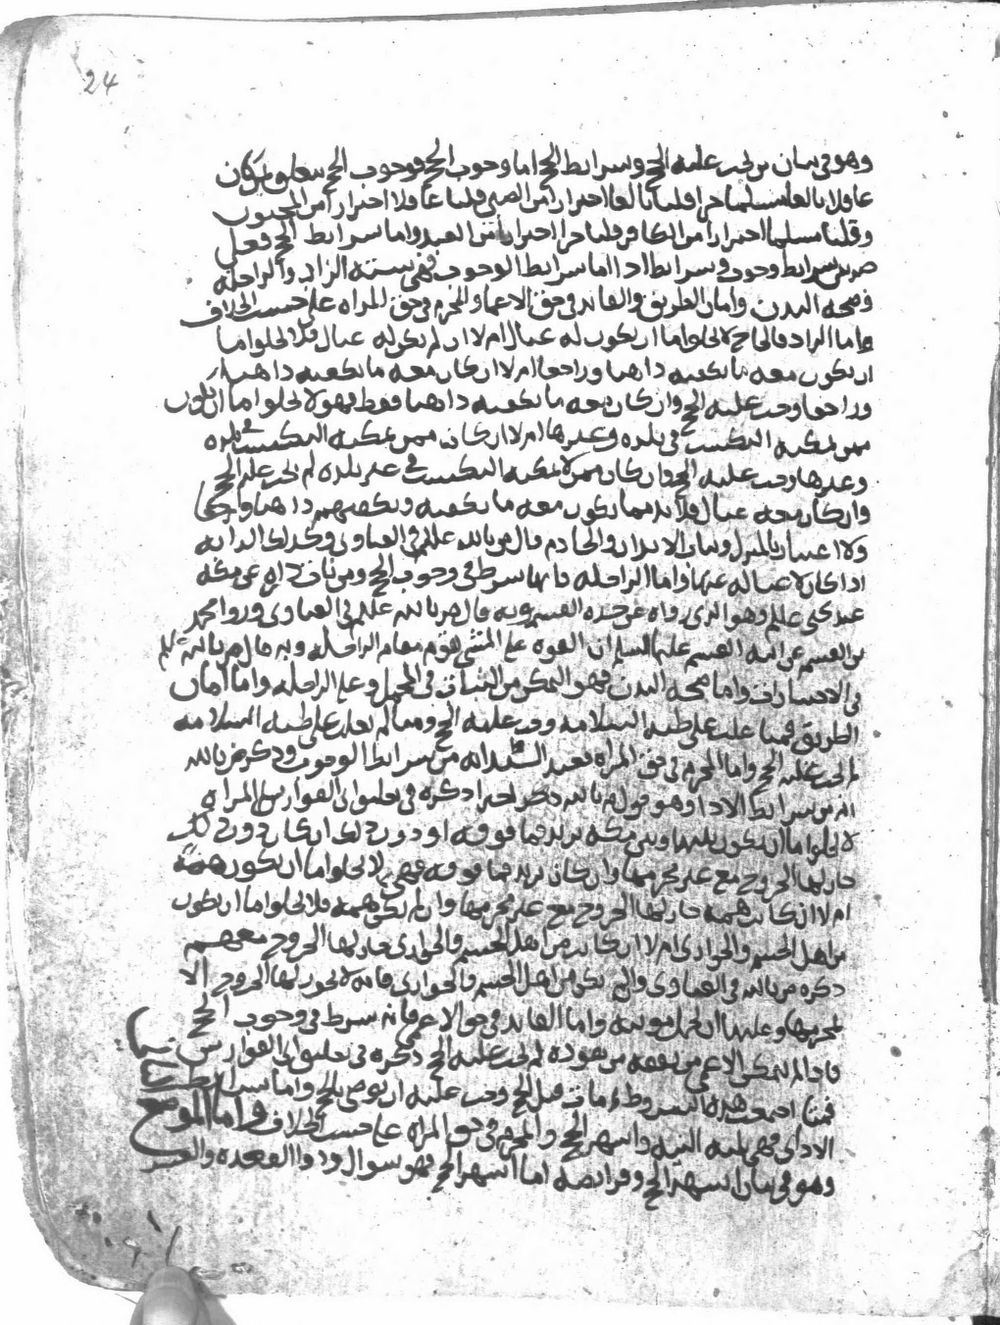 24
وهو في بيان من يجب عليه الحج وشرايط الحج اما وجوب الحج فوجوب الحج يتعلق بمن كان
عاقلا بالغا مسلما حرا قلنا بالغا احترازا من الصبي قلنا عاقلا احترازا من المجنون
وقلنا مسلما احترازا من الكافر قلنا حرا احترازا من العبد واما شرايط الحج فعلى
ضربين شرايط وجوب وشرايط ادا اما شرايط الوجوب فهي ستة الزاد والراحلة
وصحة البدن وامان الطريق والقائد في حق الاعما والمحرم في حق المراه على حسب الخلاف
اما الزاد فالحاج لا يخلوا اما ان يكون له عيال ام لا ان لم يكن له عيال فلا يخلوا اما
ان يكون معه ما يكفيه ذاهبا وراجعا ام لا ان كان معه ما يكفيه ذاهبا
وراجعا وجب عليه الحج وان كان معه ما يكفيه ذاهبا فقط فهو لا يخلوا اما ان يكون
ممن يمكنه التكسب في بلده وغيرها ام لا ان كان ممن يمكنه التكسب في بلده
وغيرها وجب عليه الحج وان كان ممن لا يمكنه التكسب في غير بلده لم يجب عليه الحج
وان كان معه عيال فلا بد مما يكون معه ما يكفيه ويكفيهم ذاهبا وراجعا
ولا اعتبار بالمنزل وثياب الابدان والخادم قال م بالله عللم في الفتاوى وكذلك الدابة
اذا كان لا غنا له عنها واما الراحلة فانها شرط في وجوب الحج ومن ناف داره عن مكة
عند يحيى عللم وهو الذي رواه عن جده القسم وبه قال م بالله عللم في الفتاوى وروا محمد
بن القسم عن ابيه القسم عليهما السلم ان القوة على المشي تقوم مقام الراحلة وبه قال م بالله علم
في الاختيارات واما صحة البدن فهو التمكن من الثبات في المحمل وعلى الراحلة واما امان
الطريق فمتا غلب على ظنه السلامة وجب عليه الحج ومتا لم يغلب على ظنه السلامة
لم يجب عليه الحج واما المحرم في حق المراه فعند السيد انه من شرايط الوجوب وذكر م بالله
انه من شرايط الادا وهو قول م بالله اخرا ذكره في تعليق ابي الفوارس المراه
لا يخلوا اما ان يكون بينها وبين مكة بريد فما فوقه او دون ذلك ان كان دون ذلك
جاز لها الخروج مع غير محرمها وان كان بريد فما فوقه فهي لا يخلوا اما ان تكون همة
ام لا ان كانت همة جاز لها الخروج مع غير محرمها وان لم تكن همة فلا يخلوا اما ان تكون
من اهل الحشم والجواري ام لا ان كانت من اهل الحشم والجواري جاز لها الخروج معهم
ذكره م بالله في الفتاوى وان لم تكن من اهل الحشم والجواري فانه لا يجوز لها الخروج الا
بمحرمها وعليها ان تحمل مونته واما القائد في حق الاعمى فانه شرط في وجوب الحج
فاذا لم يتمكن الاعمى من نفقة من يقوده لم يجب عليه الحج ذكره في تعليق ابي الفوارس
فمتا اجتمعت هذه الشروط ومات قبل الحج وجب عليه ان يوصي بالحج واما شرايط
الادا فهي ثلاثة النية واشهر الحج والمحرم في حق المراه على حسب الخلاف واما الموضع
وهو في بيان اشهر الحج وفرايضه اما اشهر الحج فهو شوال وذوا القعدة والعشر